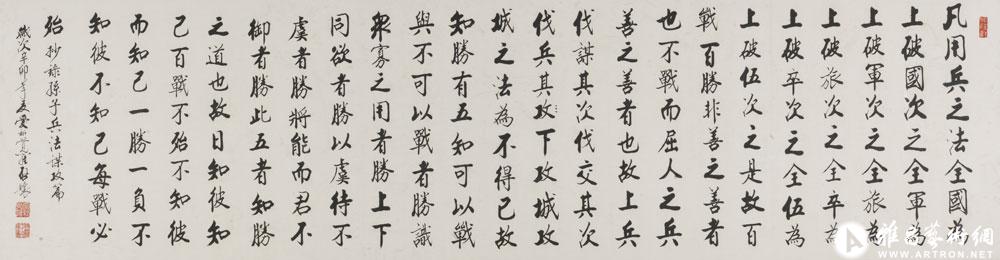 凡用兵之法全國為
上破國次之全軍為
上破軍次之全旅為
上破旅次之全卒為
上破卒次之全伍為
上破伍次之是故百
戰百勝非善之善者
也不戰而屈人之兵
善之善者也故上兵
伐謀其次伐交其次
伐兵其攻下攻城攻
城之法為不得已故
知勝有五知可以戰
與不可以戰者勝識
衆寡之用者勝上下
同欲者勝以虞待不
虞者勝將能而君不
御者勝此五者知勝
之道也故曰知彼知
己百戰不殆不知彼
而知己一勝一負不
知彼不知己每戰必
殆 抄錄孫子兵法謀攻篇
歲次辛卯年
雅昌藝術網
WWW.ARTRON.NET